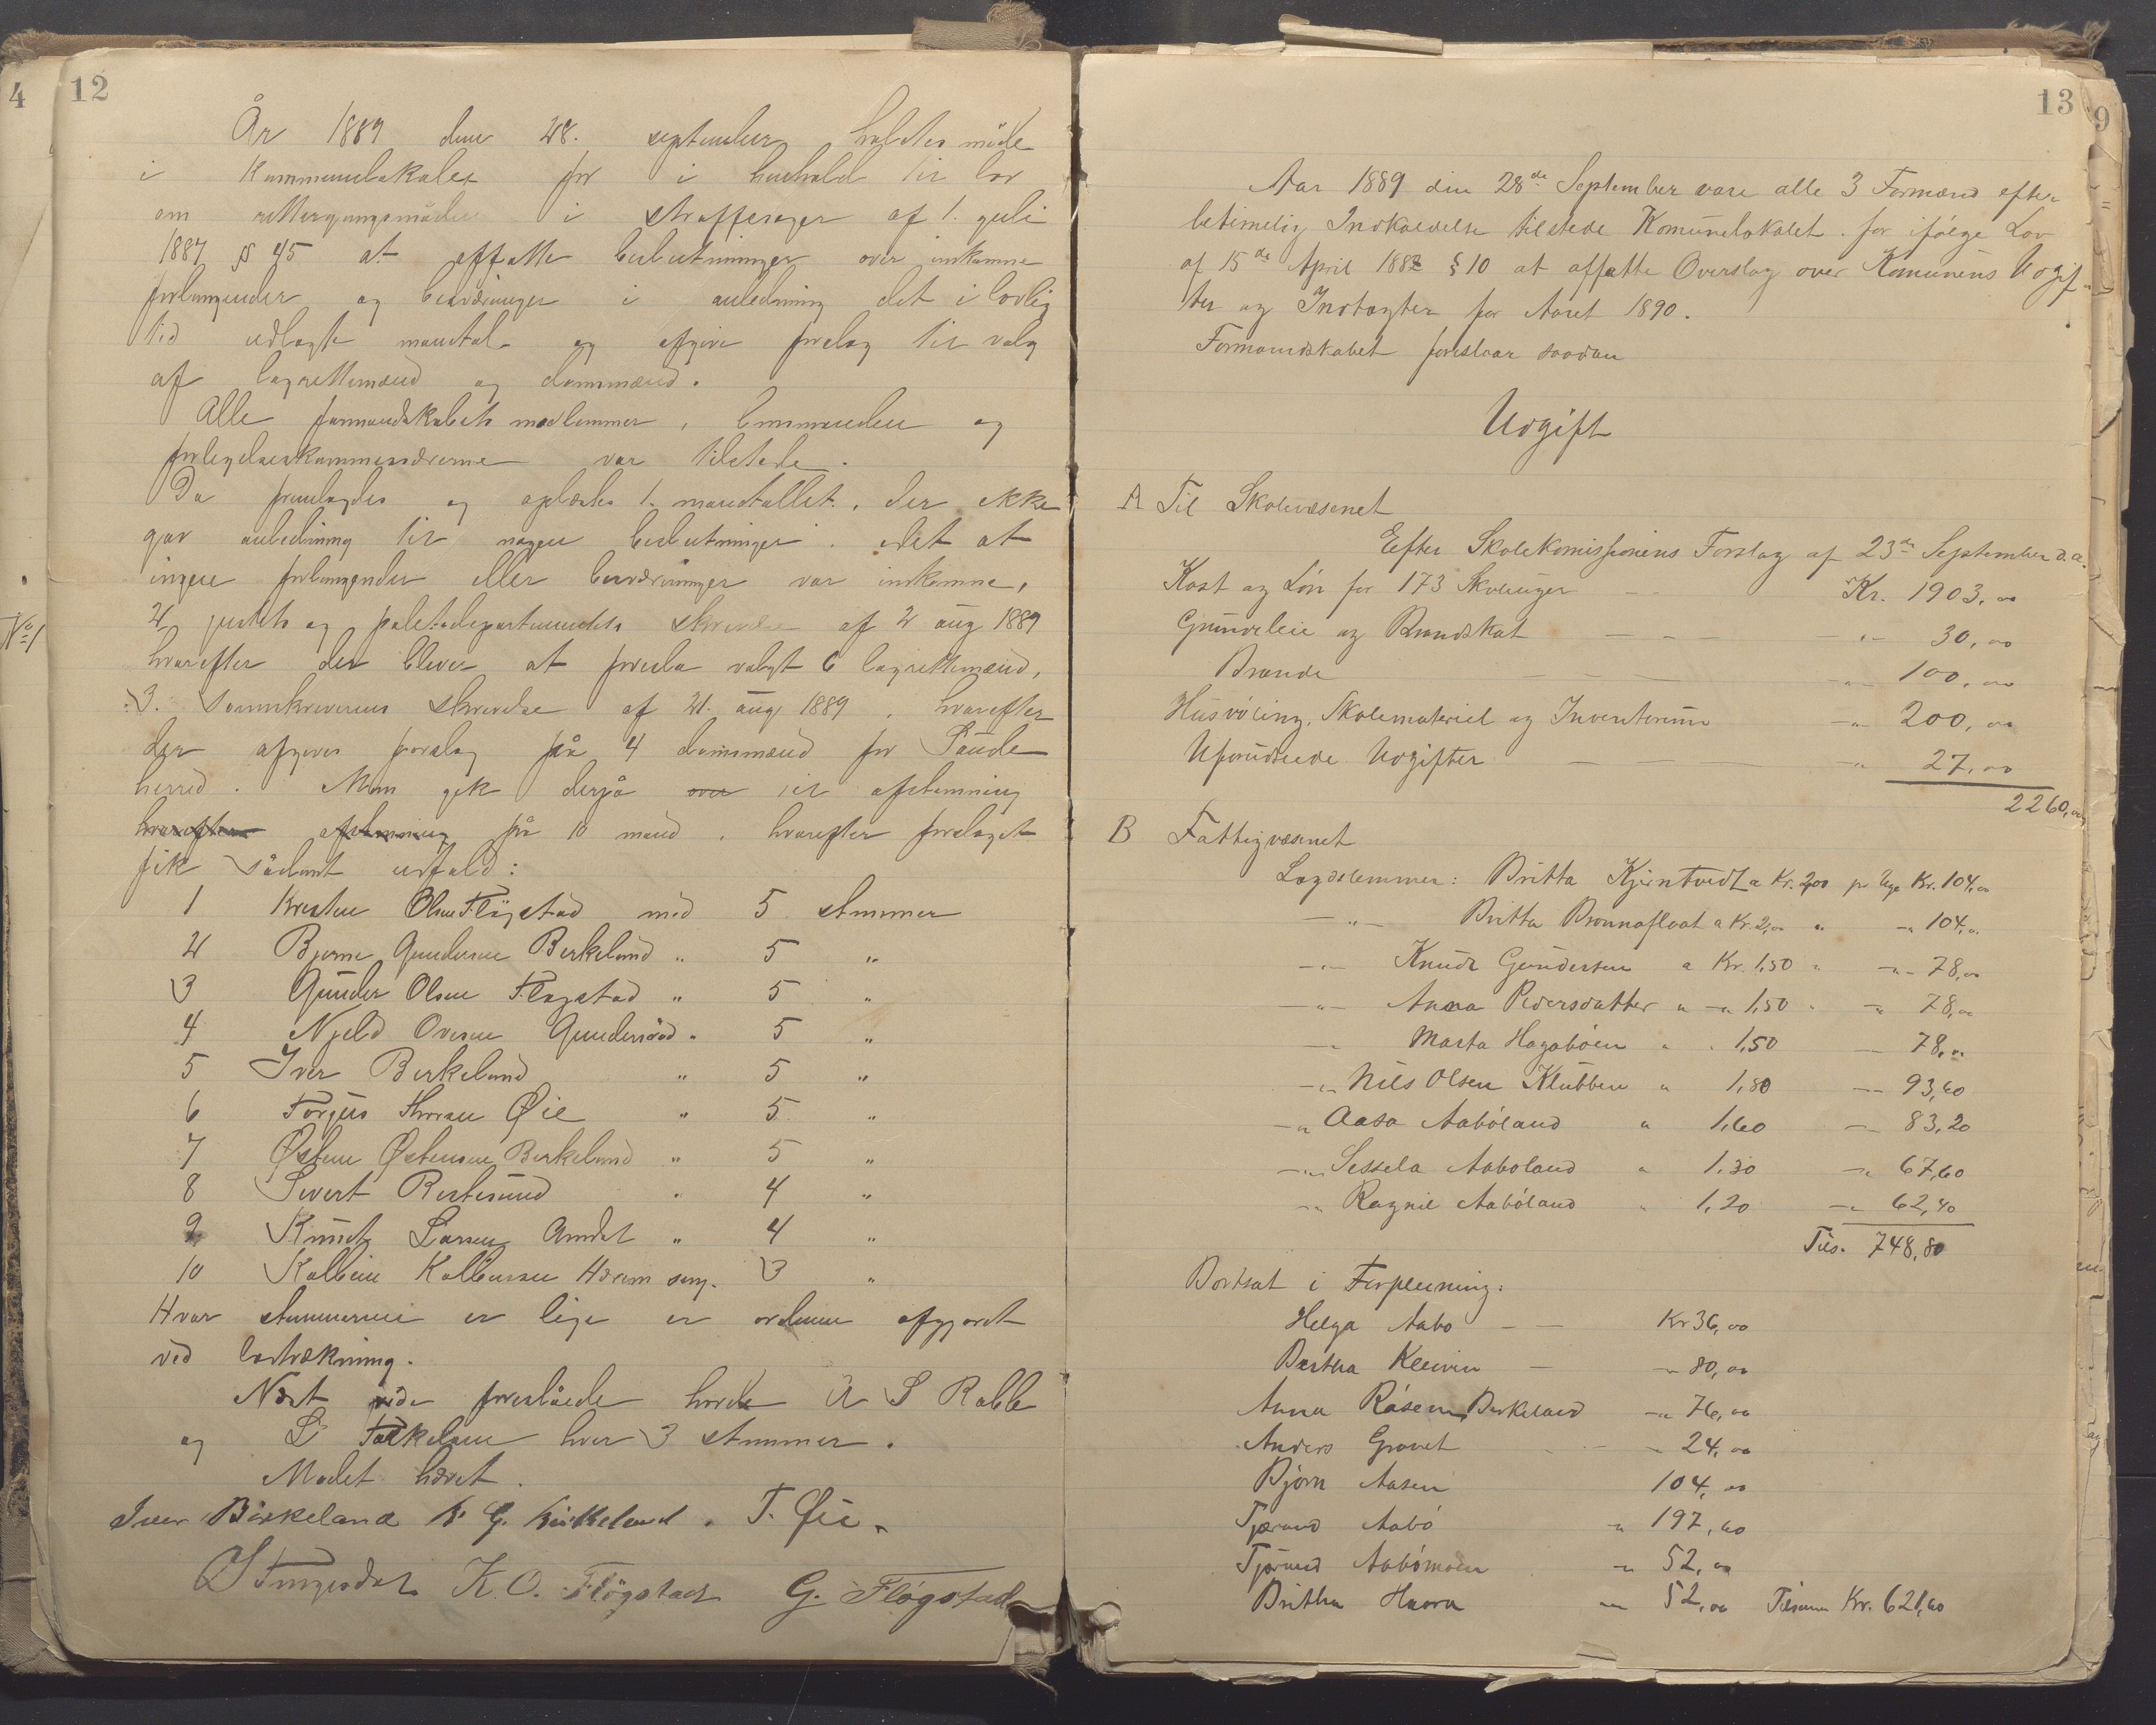 4
12
År 1889 den 28. september holdtes möde
i Kommunelokalet for i henhold til lov
om rettergangsmåden i straffesager af 1. juli
1887 § 45 at affatte beslutninger over indkomne
forlangender og besværinger i anledning det i lovlig
tid udlagte mandtal og afgive forslag til valg
af lagrettemænd og domsmænd.
Alle formandskabets medlemmer, lensmanden og
forligelseskommissærerne var tilstede.
Da fremlagdes og oplæstes 1. mandtallet, der ikke
gav anledning til nogen beslutninger, idet at
ingen forlangender eller besværinger var indkomne,
2, justits og politidepartementets skrivelse af 2 aug 1889
No 1
hvorefter der bliver at foreslå valgt 6 lagrettemænd,
3. Sorenskriverens skrivelse af 21. aug 1889, hvorefter
der afgives forslag på 4 domsmænd for Saude
herred. Man gik derpå over til afstemning
hvorefter afstemning på 10 mand, hvorefter forslaget
fik sådant udfald:
1 Kresten Olsen Fløgstad med 5 stemmer
2 Bjerne Gundersen Birkeland " 5 "
3 Gunder Olsen Fløgstad " 5 "
4 Njeld Ovesen Gundersråd " 5 "
5 Iver Berkeland " 5 "
6 Torjus Thorsen Øie " 5 "
7 Østen Østensen Berkeland " 5 "
8 Sivert Restesund " 4 "
9 Knudt Larsen Amdal " 4 "
10 Kolbein Kolbensen Hærem seng. 3 "
Hvor stemmerne er lige er ordenen afgjordt
ved lodtrækning.
Næst disse foreslåede havde A S Rabbe
og L Torkelsen hver 3 stemmer.
Mødet hævet.
Iver Birkeland B. G. Birkeland. T. Øie.
K. O. Fløgstad G. Fløgstad
13
9
Aar 1889 den 28de September vare alle 3 Formænd efter
betimelig Indkaldelse tilstede Komunelokalet for ifølge Lov
af 15de April 1882 § 10 at affatte Overslag over Komunens Udgif-
ter og Indtægter for Aaret 1890.
Formandskabet foreslaar saadan
Udgift
A Til Skolevæsenet
Efter Skolekomissionens Forslag af 23de September d.a.
Kost og Løn for 173 Skoleuger - - Kr. 1903,00
Grundleie og Brandskat - - - - " - 30,00
Brænde - - - - " - 100,00
Husvøling, Skolemateriel og Inventarium - " - 200,00
Uforudseede Udgifter - - - - " - 27,00
2260,00
B Fattigvæsenet
Lægdslemmer: Britta Kjerntvedt a Kr. 2,00 pr Uge Kr. 104,00
- " - Britta Bronnaflaat a Kr. 2,00 " - " 104,00
- " - Knudt Gundersen a Kr. 1,50 " - " - 78,00
- " - Anna Pedersdatter " - " 1,50 " - " 78,00
- " Marta Hagabøen " " 1,50 - 78,00
- " - Nils Olsen Klubben " 1,80 - 93,60
- " Aasa Aabøland " 1,60 - 83,20
- " - Sessela Aaboland " 1,30 - " 67,60
- " Ragnil Aabøland " 1,20 - " 62,40
Tils. 748,80
Bortsat i Forpleining:
Helga Aabo - - Kr 36,00
Bertha Kleiven - - " 80,00
Anna Råsen, Birkeland - " 76,00
Anders Gronet - - - " 24,00
Bjørn Aasen 104,00
Tjerand Aabø " 197,60
Tjørned Aabømoen - " 52,00
Britha Haara - " 52,00 Tilsam Kr. 621,60